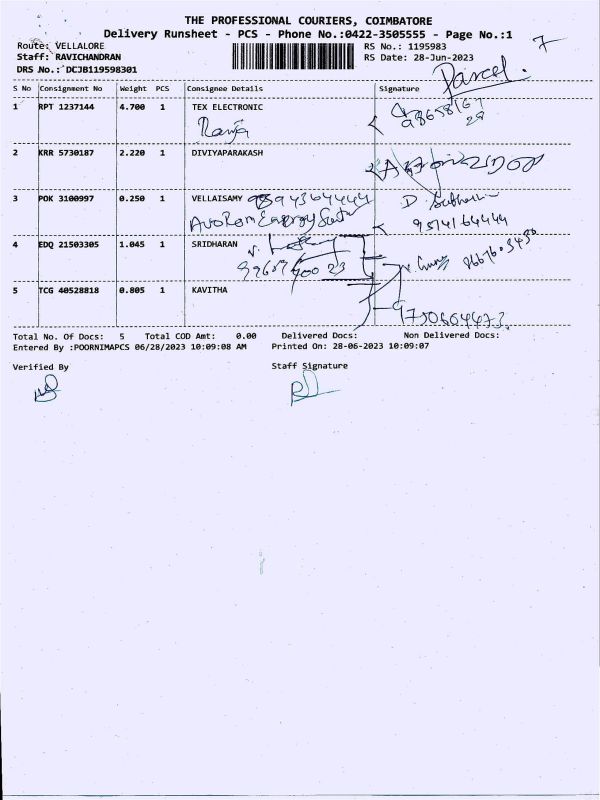 THE PROFESSIONAL COURIERS, COIMBATORE
Delivery Runsheet - PCS - Phone No.:0422-3505555 - Page No.:1
Route: VELLALORE RS No.: 1195983 7
Staff: RAVICHANDRAN RS Date: 28-Jun-2023
DRS No.: DCJB119598301 Parcel.
S No Consignment No Weight PCS Consignee Details Signature
1 RPT 1237144 4.700 1 TEX ELECTRONIC
2 KRR 5730187 2.220 1 DIVIYAPARAKASH
3 POK 3100997 0.250 1 VELLAISAMY
9514164444
4 EDQ 21503305 1.045 1 SRIDHARAN
5 TCG 40528818 0.805 1 KAVITHA
9750604473.
Total No. Of Docs: 5 Total COD Amt: 0.00 Delivered Docs: Non Delivered Docs:
Entered By :POORNIMAPCS 06/28/2023 10:09:08 AM Printed On: 28-06-2023 10:09:07
Verified By Staff Signature